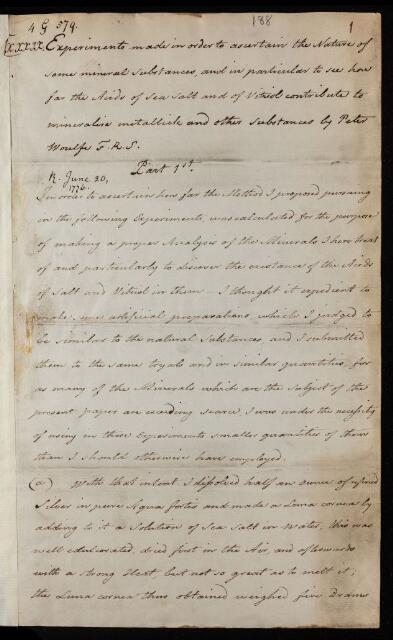 4 G 579.
188
1
[XXXXX. Experiments made in order to ascertain the Nature of
some mineral Substances, and in particular to see how
far the Acids of Sea Salt and of Vitriol contribute to
mineralise metallick and other substances by Peter
Woulfe F.R.S.
Part 1st.
R. June 20,
1776.
In order to ascertain how far the Method I proposed pursuing
in the following Experiments, was calculated for the purpose
of making a proper Analysis of the Minerals I here treat
of and particularly to discover the existance of the Acids
of Salt and Vitriol in them I thought it expedient to
make some artificial preparations which I judged to
be similar to the natural Substances, and I submitted
them to the same tryals and in similar quantities, for
as many of the Minerals which are the subject of the
present paper are exceeding scarce I was under the necessity
of using in these Experiments smaller quantities of them
than I should otherwise have employed.
(a) With that intent I dissolved half an ounce of refined
Silver in pure Aqua fortis and made a Luna cornea by
adding to it a Solution of Sea Salt in Water, this was
well edulcorated, dried first in the Air, and afterwards
with a strong Heat, but not so great as to melt it;
the Luna cornea thus obtained weighed five Drams